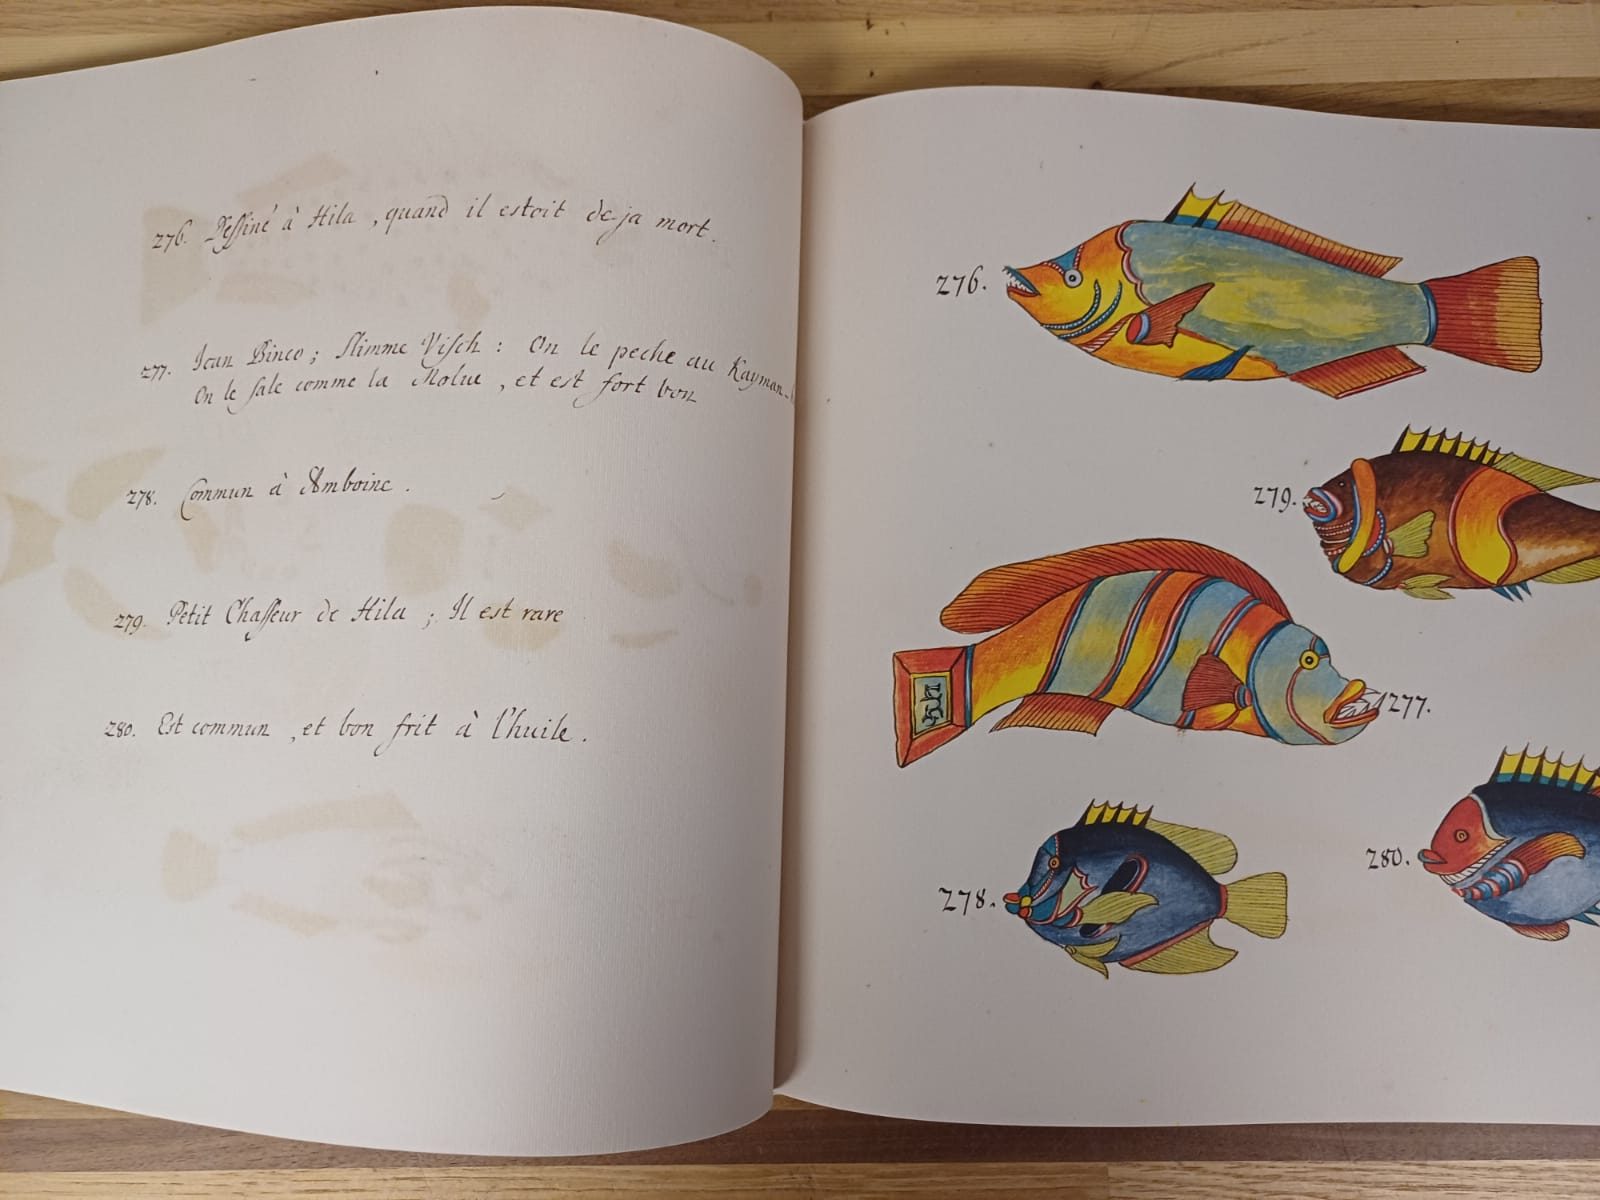 276. Dessiné à Hila, quand il estoit deja mort.
277. Ican Binco; Slimme Visch: On le peche au Kayman-
On le sale comme la Molue, et est fort bon
278. Commun à Amboine.
279. Petit Chasseur de Hila; Il est rare
280. Est commun, et bon frit à l'huile.
276.
279.
277.
278.
280.